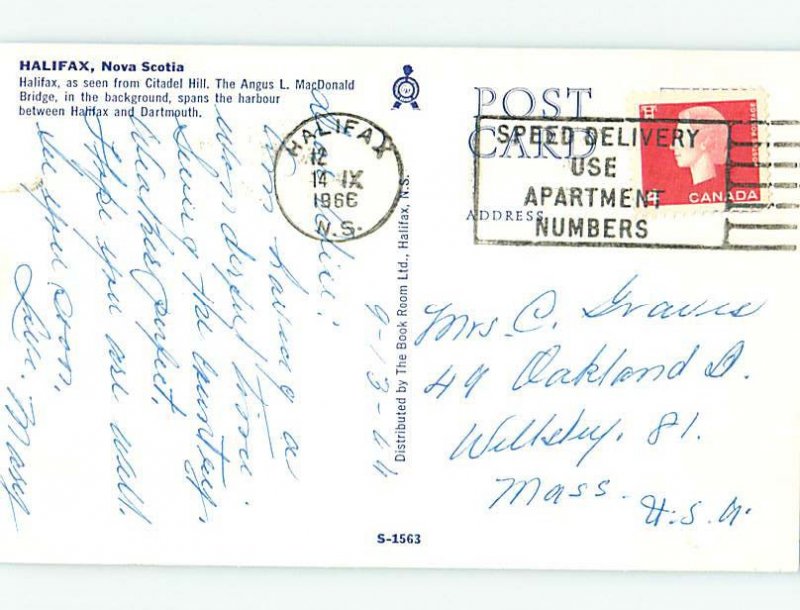 HALIFAX, Nova Scotia
Halifax, as seen from Citadel Hill. The Angus L. MacDonald
Bridge, in the background, spans the harbour
between Halifax and Dartmouth.
POST
CARD
ADDRESS
HALIFAX
12
14 IX
1966
N.S.
SPEED DELIVERY
USE
APARTMENT
NUMBERS
CANADA
Distributed by The Book Room Ltd., Halifax, N.S.
9-13-
Am having a
wonderful time.
the country,
Weather perfect.
Hope you are well.
See you soon,
Love, Mary
Mrs C. Graves
49 Oakland
81.
Mass.
U.S.A.
S-1563